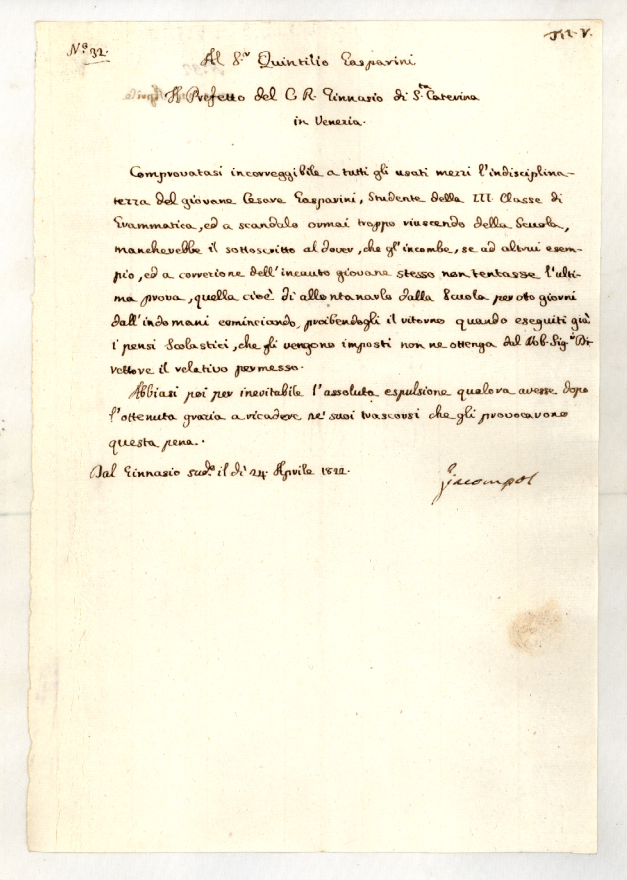 N.º 32.
Tit. V.
Al S.r Quintilio Gasparini
Il Prefetto del C. R. Ginnasio di S.ta Caterina
in Venezia.
Comprovatasi incorreggibile a tutti gli usati mezzi l'indisciplina-
tezza del giovane Cesare Gasparini, Studente della III. Classe di
Grammatica, ed a scandalo ormai troppo riuscendo della Scuola,
mancherebbe il sottoscritto al dover, che gl'incombe, se ad altrui esem-
pio, ed a correzione dell'incauto giovane stesso non tentasse l'ulti-
ma prova, quella cioè di allontanarlo dalla Scuola per oto giorni
dall'indomani cominciando, proibendogli il ritorno quando eseguiti già
i pensi Scolastici, che gli vengono imposti non ne ottenga dal Nob. Sig.r Di-
rettore il relativo permesso.
Abbiasi poi per inevitabile l'assoluta espulsione qualora avesse dopo
l'ottenuta grazia a ricadere ne' suoi trascorsi che gli provocarono
questa pena.
Dal Ginnasio sud.º il dì 24. Aprile 1822.